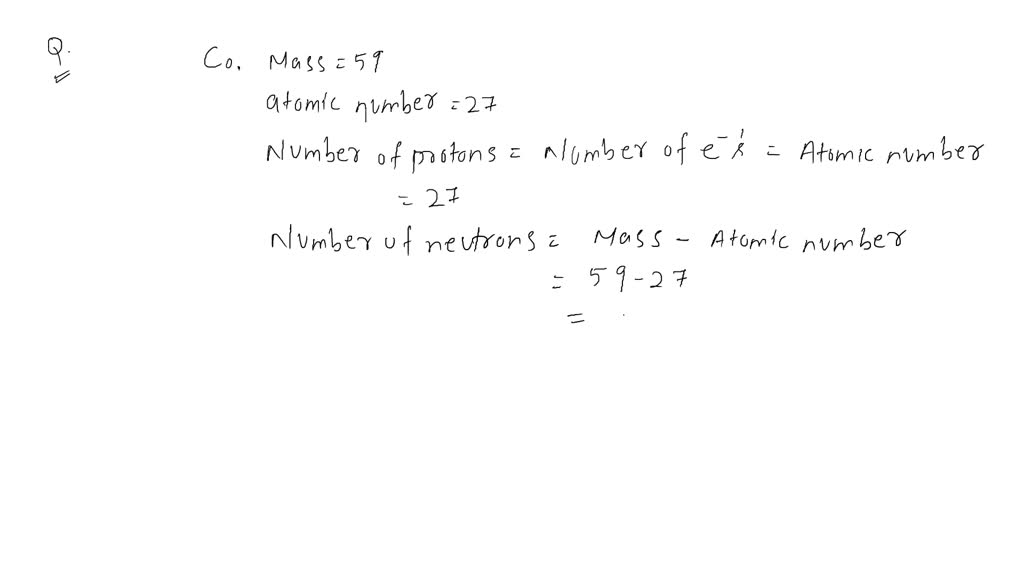 Q.
Co. Mass = 59
atomic number = 27
Number of protons = Number of e⁻'s = Atomic number
= 27
Number of neutrons = Mass - Atomic number
= 59 - 27
=